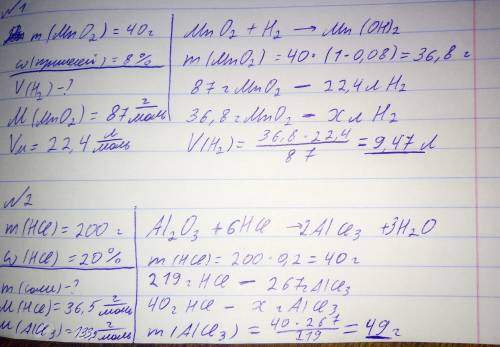 №1
m(MnO₂) = 40г
ω(примесей) = 8%
V(H₂) - ?
M(MnO₂) = 87 г/моль
Vм = 22,4 л/моль
MnO₂ + H₂ → Mn(OH)₂
m(MnO₂) = 40·(1-0,08) = 36,8 г
87 г MnO₂ — 22,4 л H₂
36,8 г MnO₂ — x л H₂
V(H₂) = 36,8 · 22,4 / 87 = 9,47 л
№2
m(HCl) = 200 г
ω(HCl) = 20%
m(соли) - ?
M(HCl) = 36,5 г/моль
M(AlCl₃) = 133,5 г/моль
Al₂O₃ + 6HCl → 2AlCl₃ + 3H₂O
m(HCl) = 200 · 0,2 = 40 г
219 г HCl — 267 г AlCl₃
40 г HCl — x г AlCl₃
m(AlCl₃) = 40 · 267 / 219 = 49 г